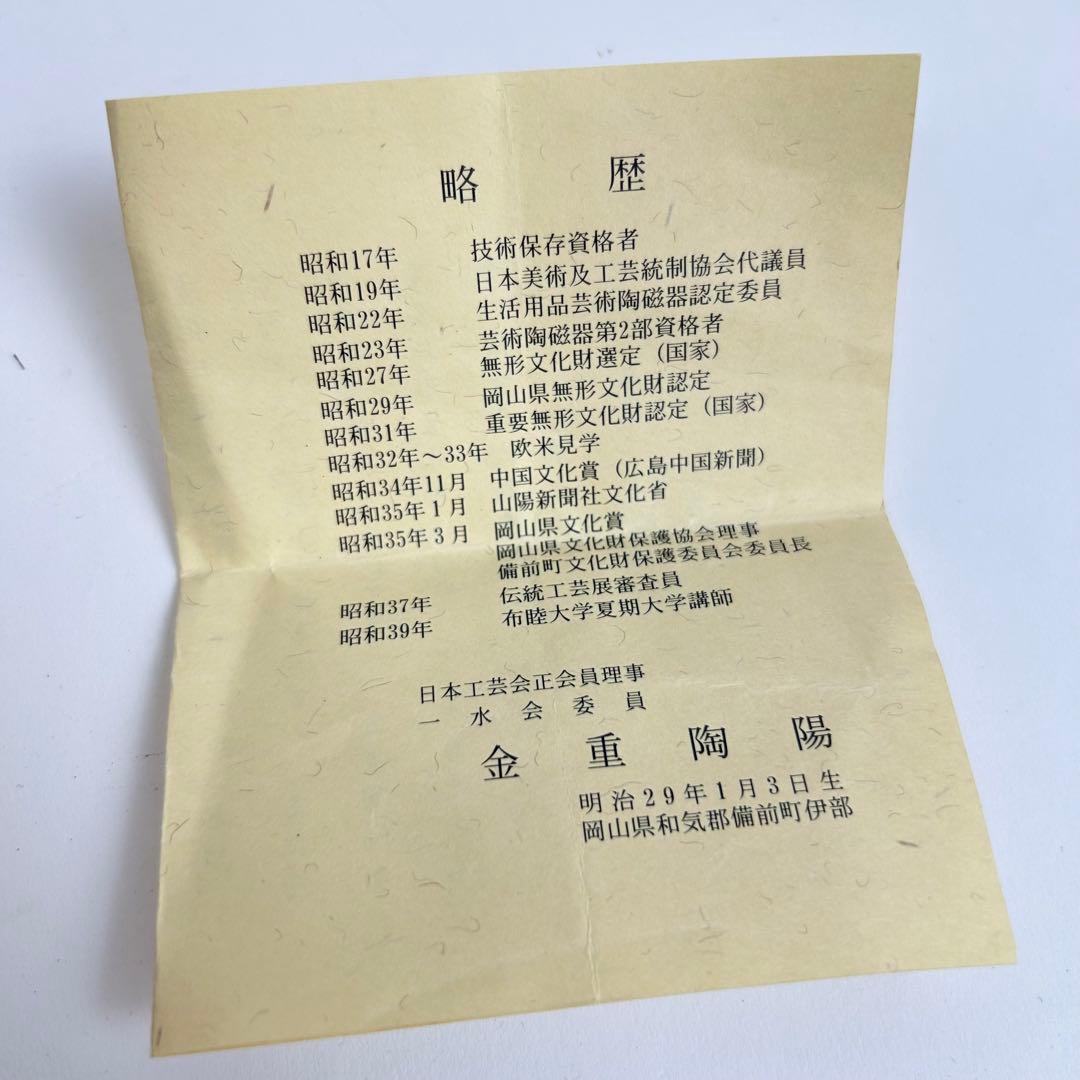 略歴
昭和17年 技術保存資格者
昭和19年 日本美術及工芸統制協会代議員
昭和22年 生活用品芸術陶磁器認定委員
昭和23年 芸術陶磁器第2部資格者
昭和27年 無形文化財選定（国家）
昭和29年 岡山県無形文化財認定
昭和31年 重要無形文化財認定（国家）
昭和32年～33年 欧米見学
昭和34年11月 中国文化賞（広島中国新聞）
昭和35年1月 山陽新聞社文化省
昭和35年3月 岡山県文化賞
岡山県文化財保護協会理事
備前町文化財保護委員会委員長
昭和37年 伝統工芸展審査員
昭和39年 布睦大学夏期大学講師
日本工芸会正会員理事
一水会委員
金重陶陽
明治29年1月3日生
岡山県和気郡備前町伊部